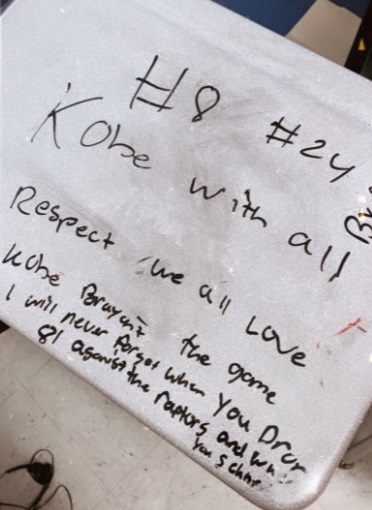 #8 #24
Kobe with all
Respect we all Love
Kobe Brayant the game
I will never forget when You Drop
81 against the raptors and
You